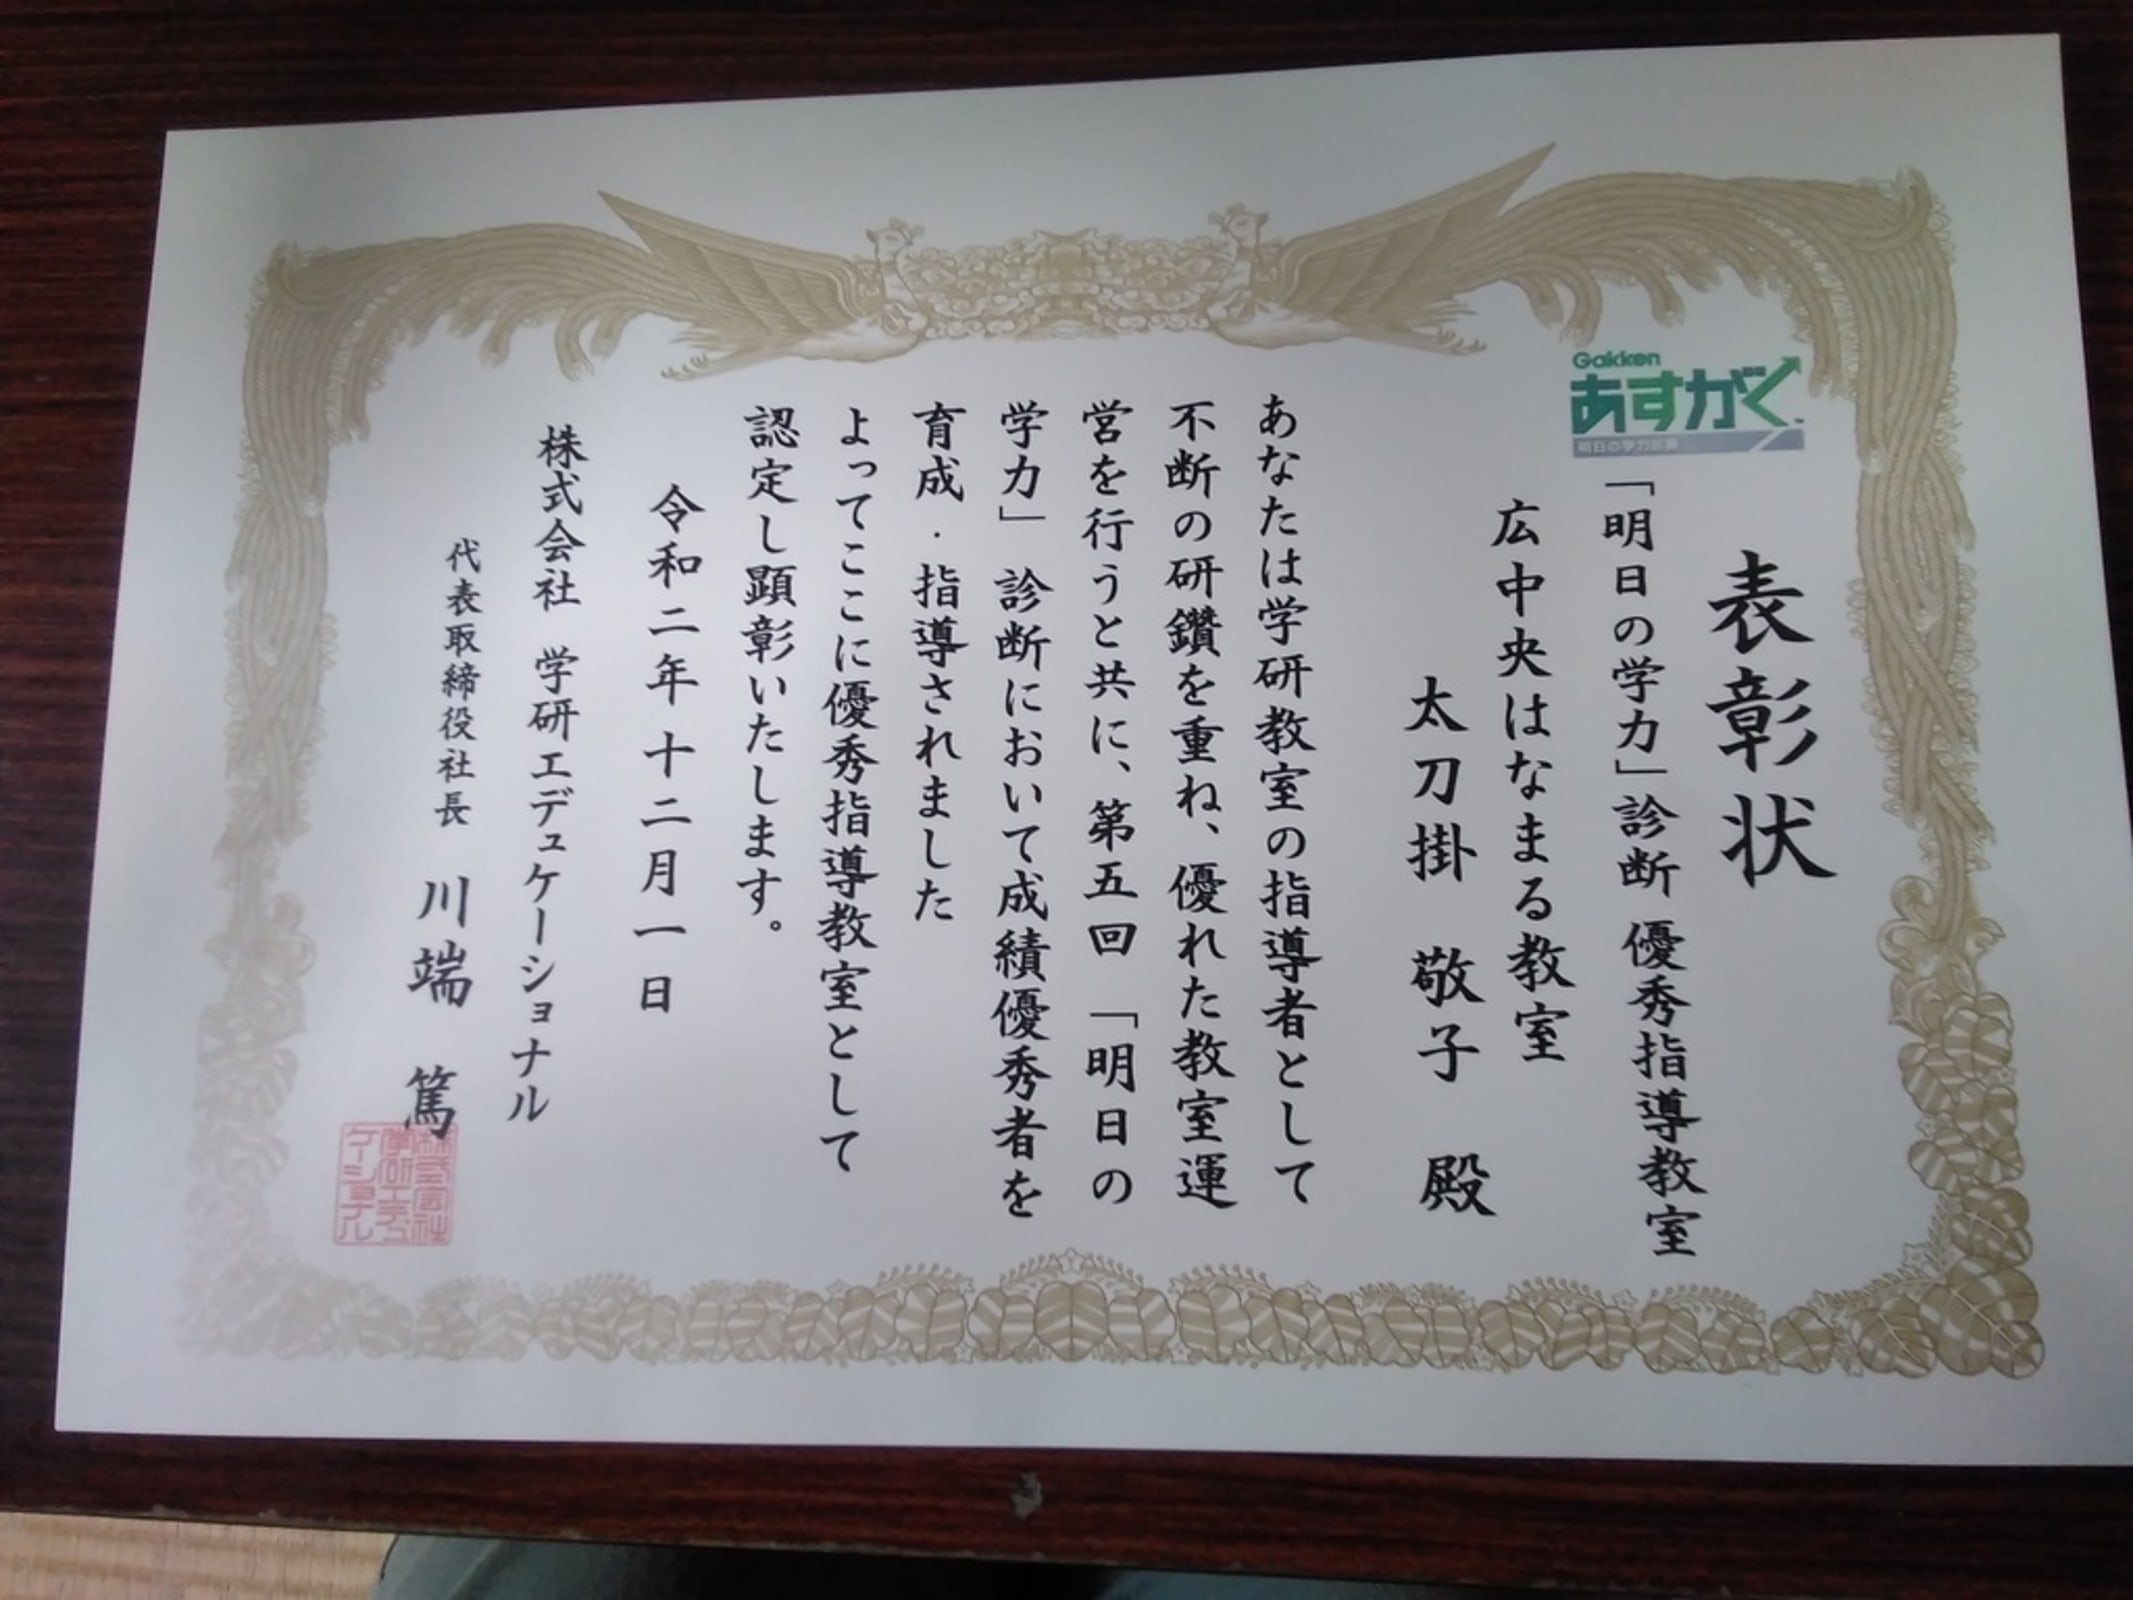 Gakken
あすがく
明日の学力診断
表彰状
「明日の学力」診断 優秀指導教室
広中央はなまる教室
太刀掛 敬子 殿
あなたは学研教室の指導者として
不断の研鑽を重ね、優れた教室運
営を行うと共に、第五回「明日の
学力」診断において成績優秀者を
育成・指導されました
よってここに優秀指導教室として
認定し顕彰いたします。
令和二年十二月一日
株式会社 学研エデュケーショナル
代表取締役社長 川端 篤
株式会社
学研エデュ
ケーショナル